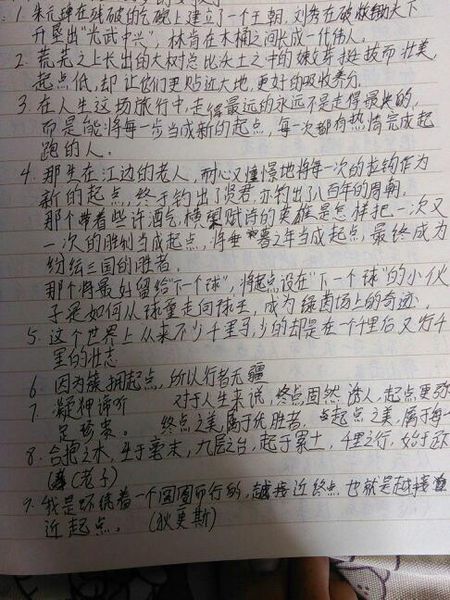 1. 朱元璋在残破的乞碗上建立了一个王朝. 刘秀在破败的天下
升起出“光武中兴”, 林肯在木桶之间长成一代伟人。
2. 荒芜之上长出的大树总比沃土之中的嫩芽挺拔而壮美,
起点低,却让他们更贴近大地,更好的吸收养分
3. 在人生这场旅行中,走得最远的永远不是走得最快的,
而是能将每一步当成新的起点,每一次都有热情完成起
跑的人。
4. 那坐在江边的老人,耐心又憧憬地将每一次的拉钩作为
新的起点,终于钓出了贤君,亦钓出了八百年的周朝.
那个带着些许酒气,横槊赋诗的英雄是怎样把一次又
一次的胜利当成起点,将垂暮之年当成起点,最终成为
纷纭三国的胜者.
那个将最好留给“下一个球”,将起点设在“下一个球”的小伙
子是如何从球童走向球王,成为绿茵场上的奇迹.
5. 这个世界上从来不少千里马,少的却是在一个千里后又行千
里的壮志
6. 因为簇拥起点,所以行者无疆
7. 凝神谛听 对于人生来说,终点固然诱人,起点更弥
足珍贵。 终点之美,属于优胜者, 起点之美,属于每一
8. 合抱之木,生于毫末,九层之台,起于累土,千里之行,始于足下
(老子)
9. 我是环绕着一个圆圈而行的,越接近终点也就是越接
近起点。 (狄更斯)